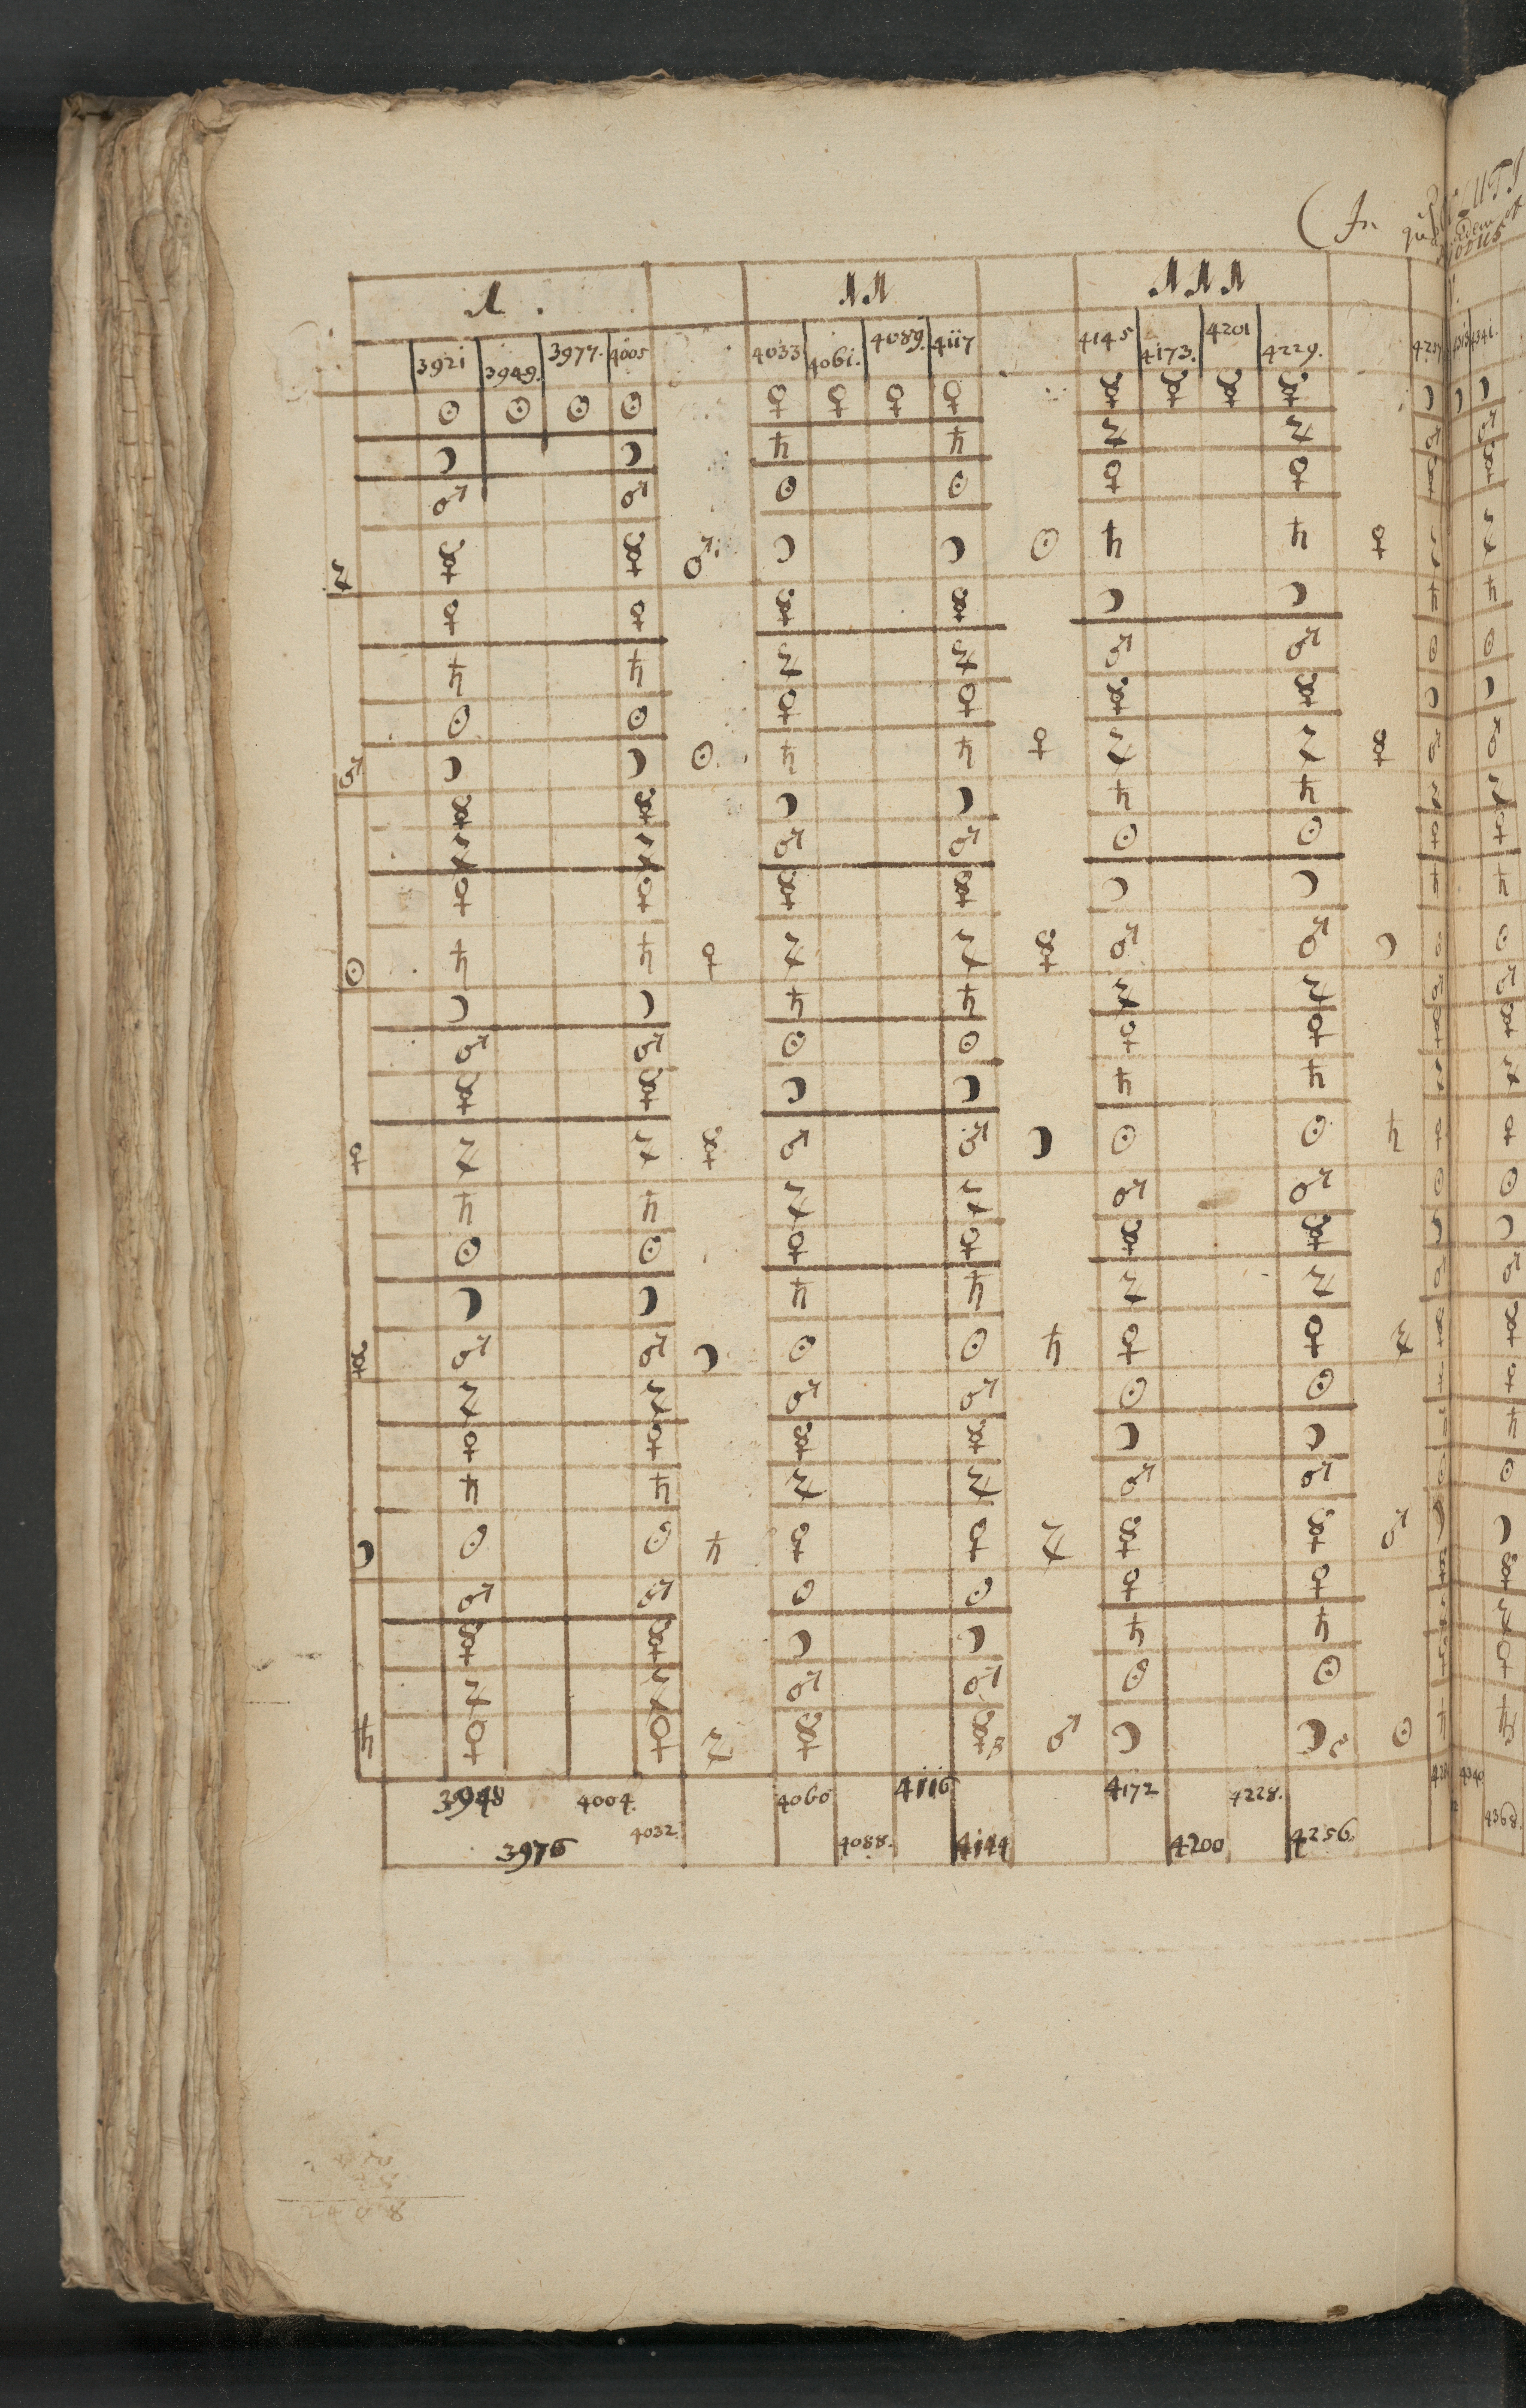 ( In
M . MM MMM
3921 3949. 3977. 4005 4033 4061. 4089. 4117 4145 4173. 4201 4229.
☉ ☉ ☉ ☉ ♀ ♀ ♀ ♀ ☿ ☿ ☿ ☿ ☽ ☽ ☽
☽ ☽ ♄ ♄ ♃ ♃ ♂ ♂
♂ ♂ ☉ ☉ ♀ ♀ ☿ ☿
♃ ☿ ☿ ♂ ☽ ☽ ☉ ♄ ♄ ♀ ♃ ♃
♀ ♀ ☿ ☿ ☽ ☽ ♄ ♄
♄ ♄ ♃ ♃ ♂ ♂ ☉ ☉
☉ ☉ ♀ ♀ ☿ ☿ ☽ ☽
♂ ☽ ☽ ☉ ♄ ♄ ♀ ♃ ♃ ☿ ♂ ♂
☿ ☿ ☽ ☽ ♄ ♄ ♃ ♃
♃ ♃ ♂ ♂ ☉ ☉ ♀ ♀
♀ ♀ ☿ ☿ ☽ ☽ ♄ ♄
☉ ♄ ♄ ♀ ♃ ♃ ☿ ♂ ♂ ☽ ☉ ☉
☽ ☽ ♄ ♄ ♃ ♃ ♂ ♂
♂ ♂ ☉ ☉ ♀ ♀ ☿ ☿
☿ ☿ ☽ ☽ ♄ ♄ ♃ ♃
♀ ♃ ♃ ☿ ♂ ♂ ☽ ☉ ☉ ♄ ♀ ♀
♄ ♄ ♃ ♃ ♂ ♂ ☉ ☉
☉ ☉ ♀ ♀ ☿ ☿ ☽ ☽
☽ ☽ ♄ ♄ ♃ ♃ ♂ ♂
☿ ♂ ♂ ☽ ☉ ☉ ♄ ♀ ♀ ♃ ☿ ☿
♃ ♃ ♂ ♂ ☉ ☉ ♀ ♀
♀ ♀ ☿ ☿ ☽ ☽ ♄
♄ ♄ ♃ ♃ ♂ ♂ ☉ ☉
☽ ☉ ☉ ♄ ♀ ♀ ♃ ☿ ☿ ♂ ☽ ☽
♂ ♂ ☉ ☉ ♀ ♀ ☿ ☿
☿ ☿ ☽ ☽ ♄ ♄ ♃
♃ ♃ ♂ ♂ ☉ ☉ ♀
♄ ♀ ♀ ♃ ☿ ☿ ♂ ☽ ☽ ☉ ♄ ♄
3948 4004. 4060 4116 4172 4228. 4340
3976 4032. 4088. 4144 4200 4256. 4368.